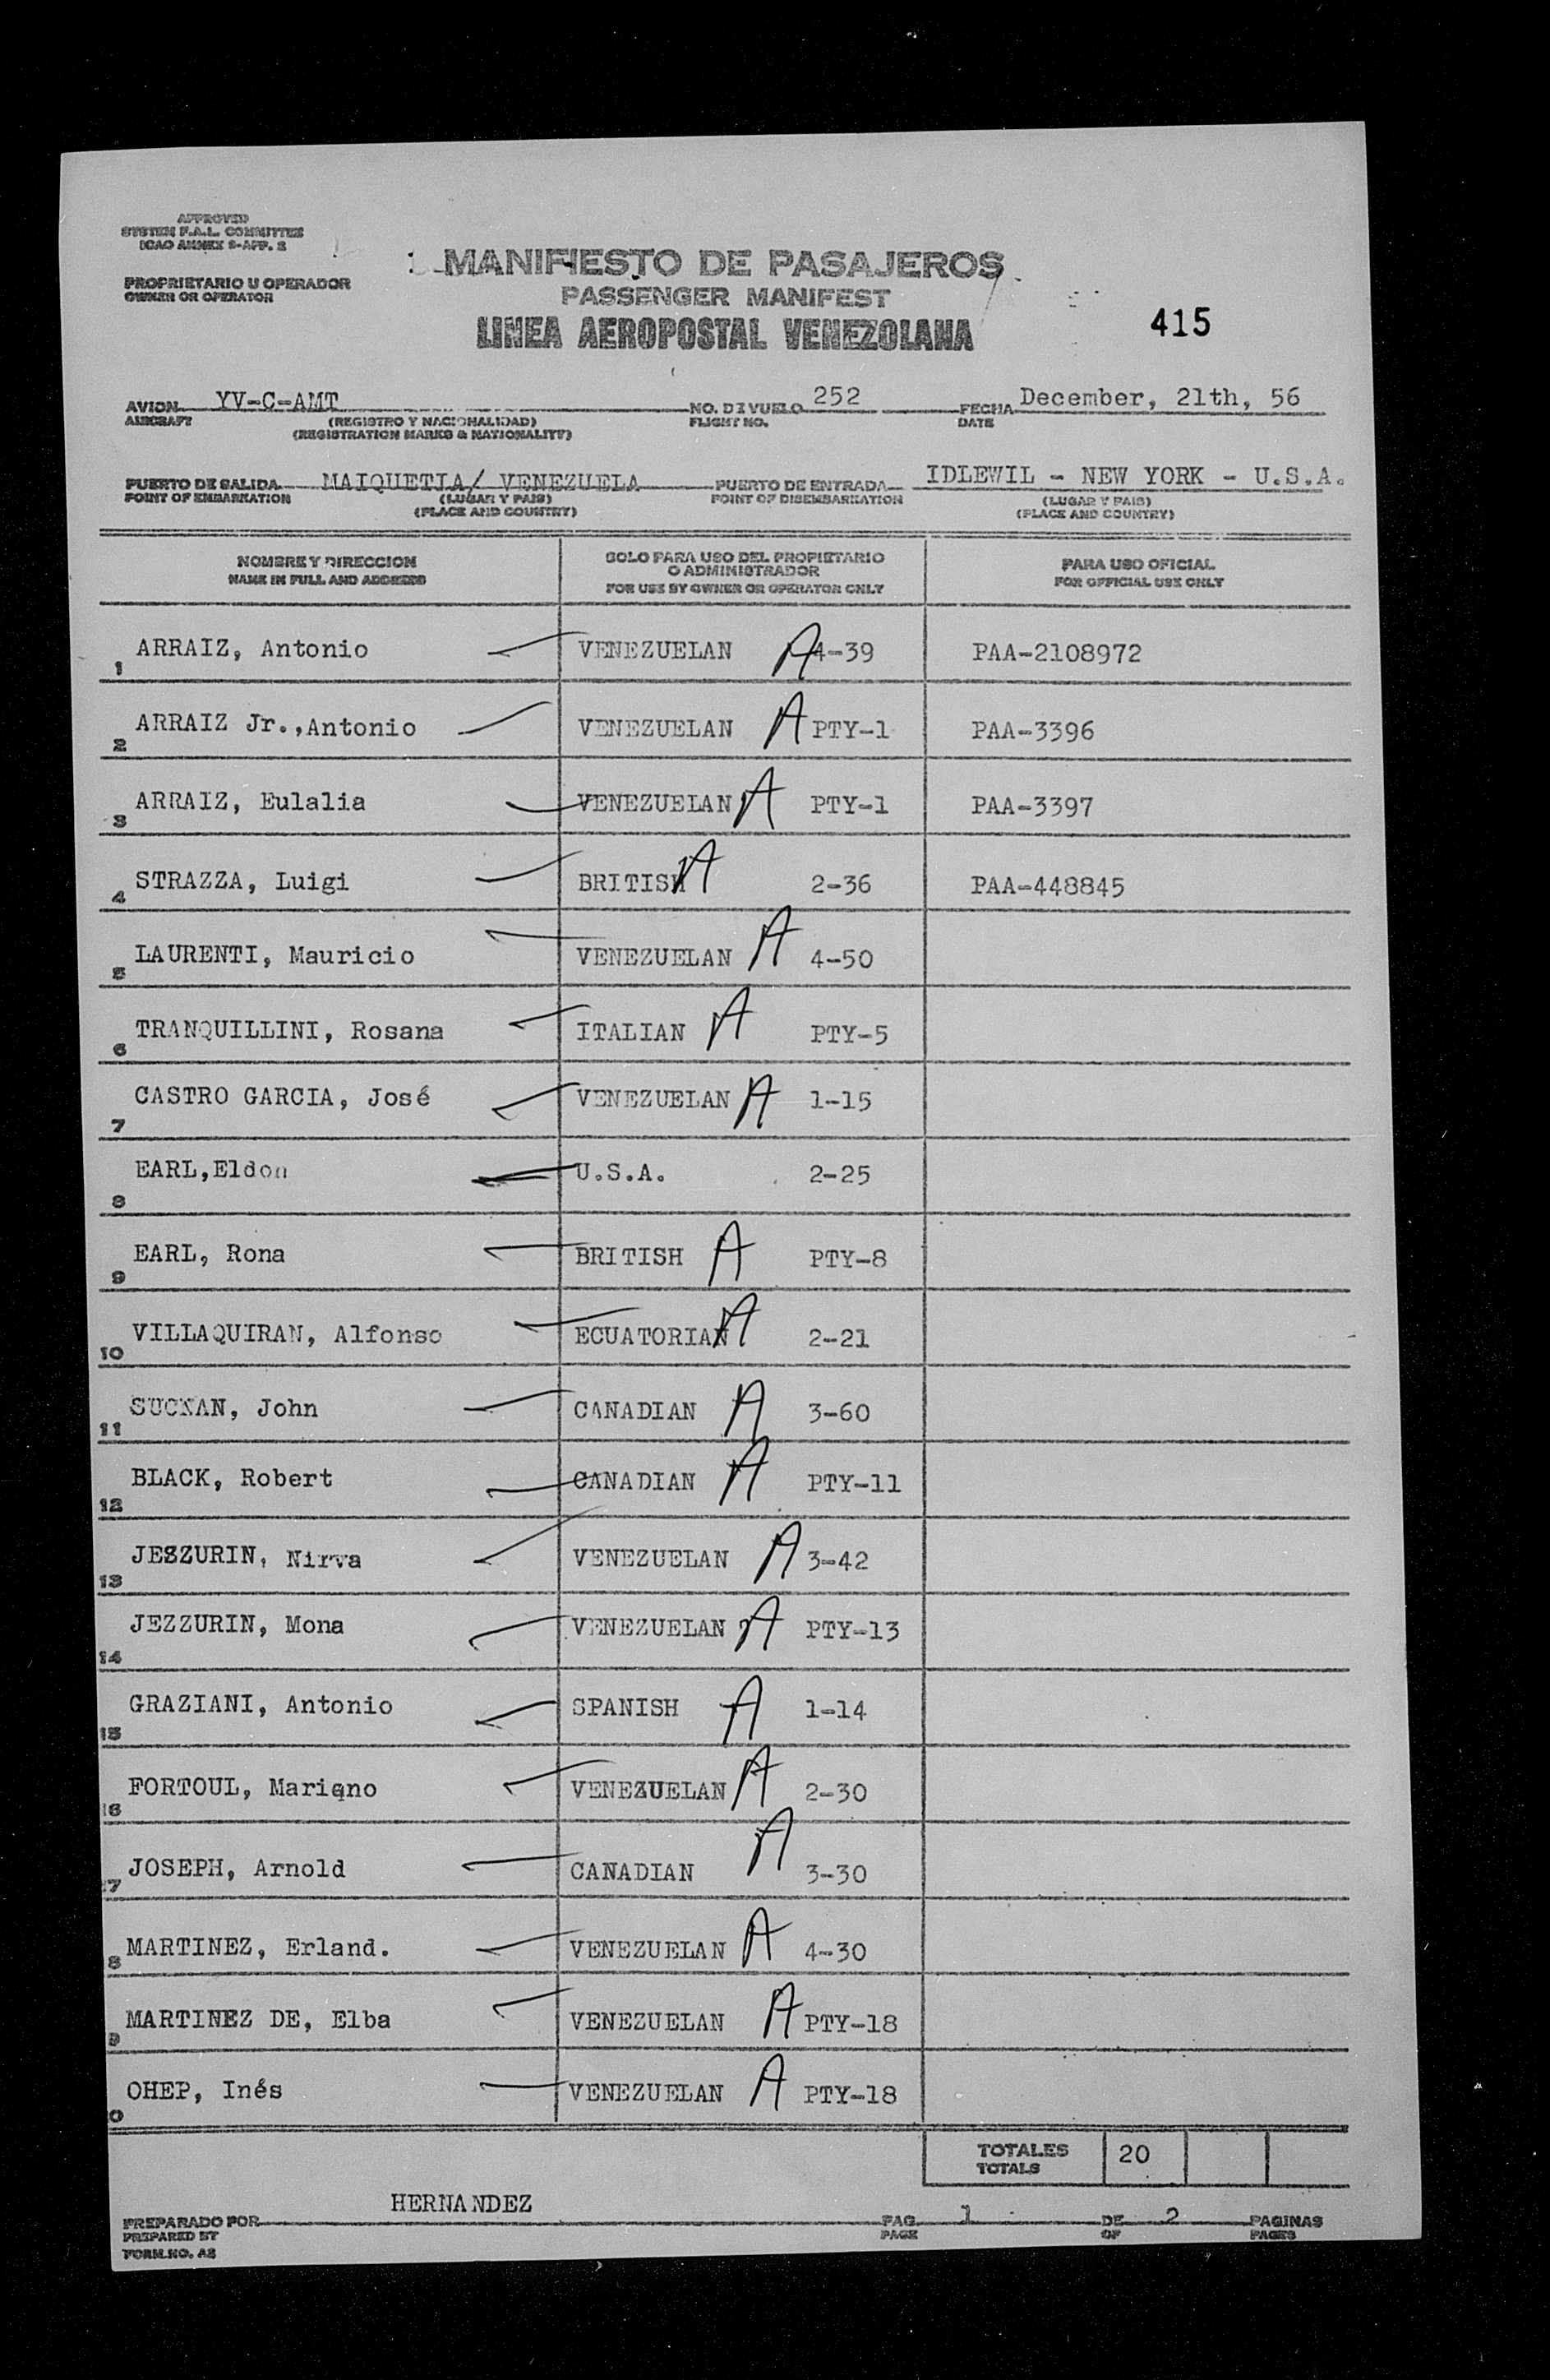 APPROVED
SYSTEM F.A.L. COMMITTEE
ICAO ANNEX 9-APP. 2
PROPRIETARIO U OPERADOR
OWNER OR OPERATOR
MANIFIESTO DE PASAJEROS
PASSENGER MANIFEST
LINEA AEROPOSTAL VENEZOLANA
415
AVION YV-C-AMT NO. DE VUELO 252 FECHA December, 21th, 56
AIRCRAFT (REGISTRO Y NACIONALIDAD) FLIGHT NO. DATE
(REGISTRATION MARKS & NATIONALITY)
PUERTO DE SALIDA MAIQUETIA/ VENEZUELA PUERTO DE ENTRADA IDLEWIL - NEW YORK - U.S.A.
POINT OF EMBARKATION (LUGAR Y PAIS) POINT OF DISEMBARKATION (LUGAR Y PAIS)
(PLACE AND COUNTRY) (PLACE AND COUNTRY)
NOMBRE Y DIRECCION
NAME IN FULL AND ADDRESS
SOLO PARA USO DEL PROPIETARIO
O ADMINISTRADOR
FOR USE BY OWNER OR OPERATOR ONLY
PARA USO OFICIAL
FOR OFFICIAL USE ONLY
1 ARRAIZ, Antonio VENEZUELAN A 4-39 PAA-2108972
2 ARRAIZ Jr.,Antonio VENEZUELAN A PTY-1 PAA-3396
3 ARRAIZ, Eulalia VENEZUELAN A PTY-1 PAA-3397
4 STRAZZA, Luigi BRITISH A 2-36 PAA-448845
5 LAURENTI, Mauricio VENEZUELAN A 4-50
6 TRANQUILLINI, Rosana ITALIAN A PTY-5
7 CASTRO GARCIA, José VENEZUELAN A 1-15
8 EARL,Eldon U.S.A. 2-25
9 EARL, Rona BRITISH A PTY-8
10 VILLAQUIRAN, Alfonso ECUATORIAN A 2-21
11 John CANADIAN A 3-60
12 BLACK, Robert CANADIAN A PTY-11
13 JEZZURIN, Nirva VENEZUELAN A 3-42
14 JEZZURIN, Mona VENEZUELAN A PTY-13
15 GRAZIANI, Antonio SPANISH A 1-14
16 FORTOUL, Mariano VENEZUELAN A 2-30
17 JOSEPH, Arnold CANADIAN A 3-30
8 MARTINEZ, Erland. VENEZUELAN A 4-30
9 MARTINEZ DE, Elba VENEZUELAN A PTY-18
0 OHEP, Inés VENEZUELAN A PTY-18
TOTALES 20
TOTALS
HERNANDEZ
PREPARADO POR PAG 1 DE 2 PAGINAS
PREPARED BY PAGE OF PAGES
FORM.NO. A2